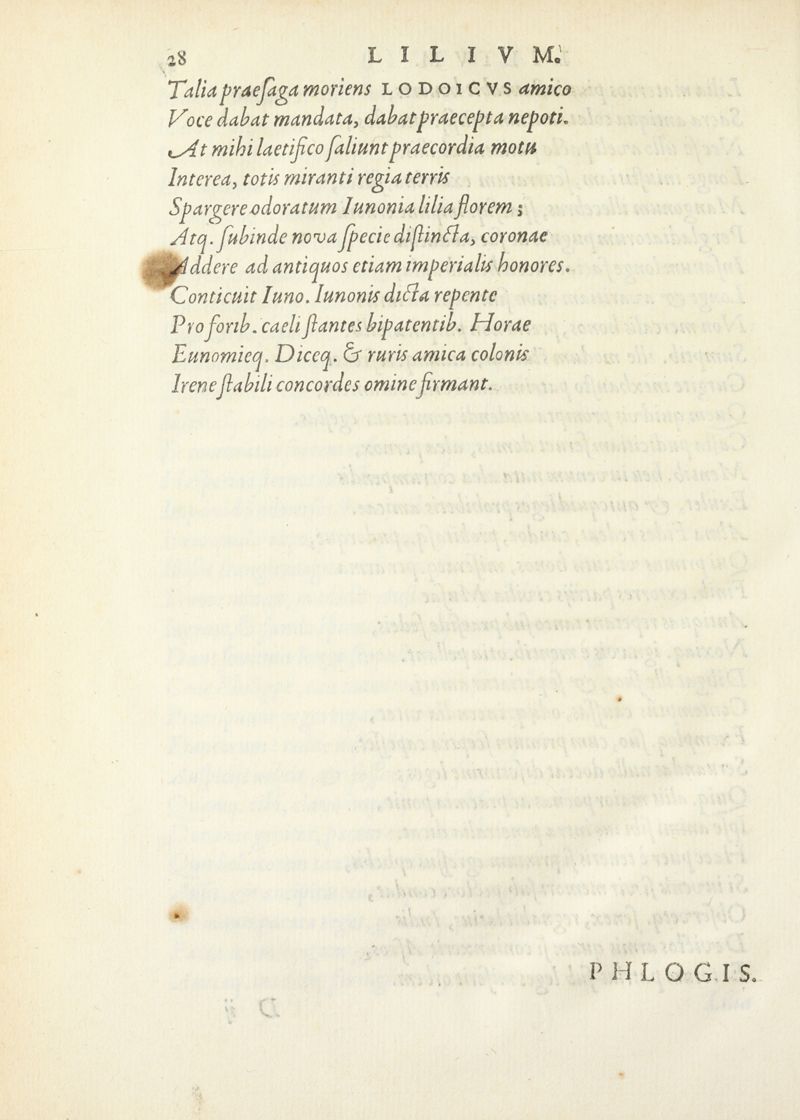 28 LILIVM.
Talia praeſaga moriens LODOICVS amico
Voce dabat mandata, dabat praecepta nepoti.
At mihi laetifico ſaliunt praecordia motu
Interea, totis miranti regia terris
Spargere odoratum Iunonia lilia florem;
Atq. ſubinde nova ſpecie diſtincta, coronae
Addere ad antiquos etiam imperialis honores.
Conticuit Iuno. Iunonis dicta repente
Pro forib. caeli ſtantes bipatentib. Horae
Eunomieq. Diceq. & ruris amica colonis
Irene ſtabili concordes omine firmant.
PHLOGIS.